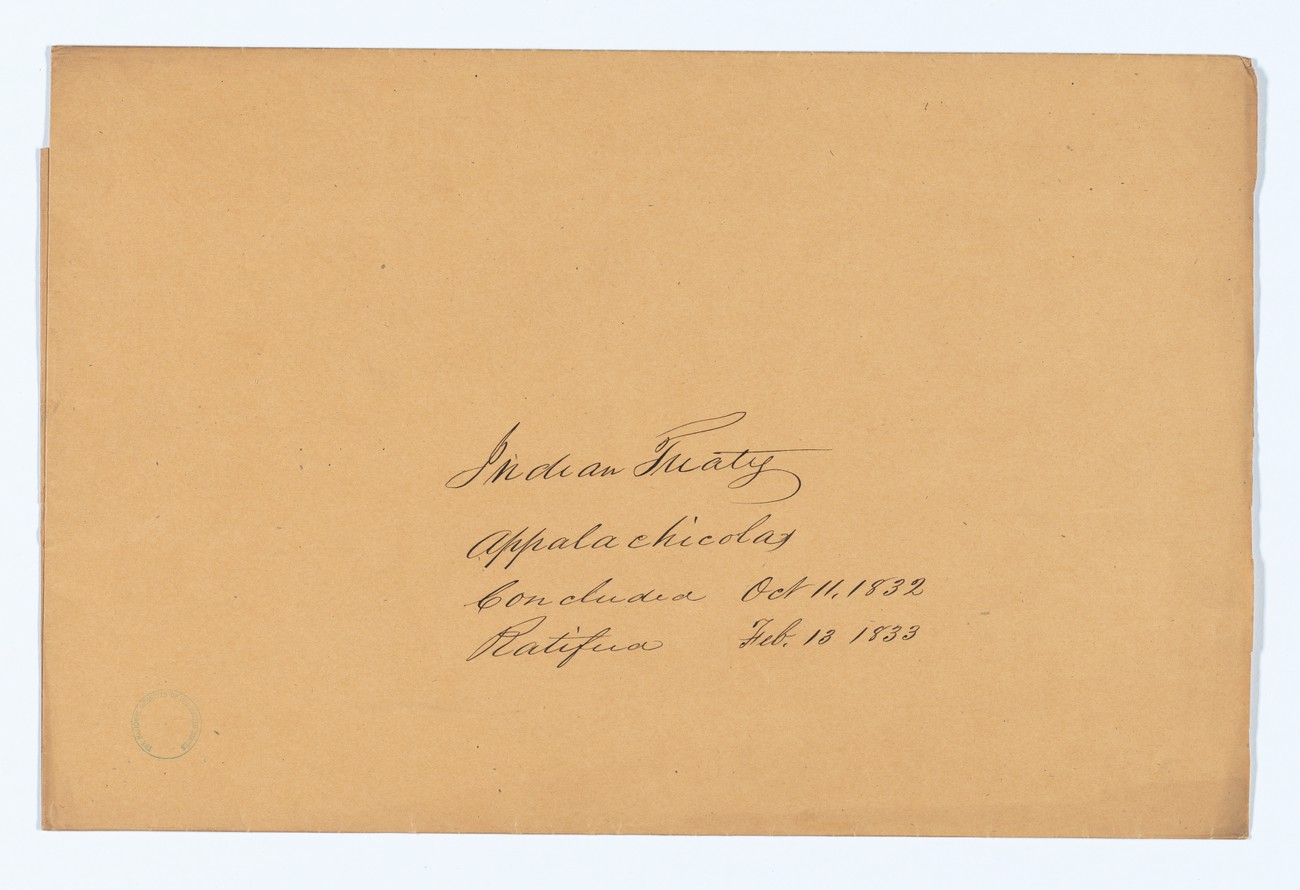 Indian Treaty
Appalachicolas
Concluded Oct 11, 1832
Ratified Feb. 13 1833